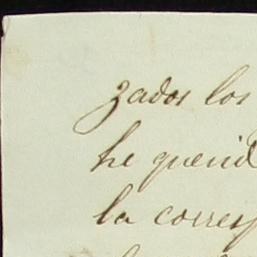 zados los
he querid
la corresp